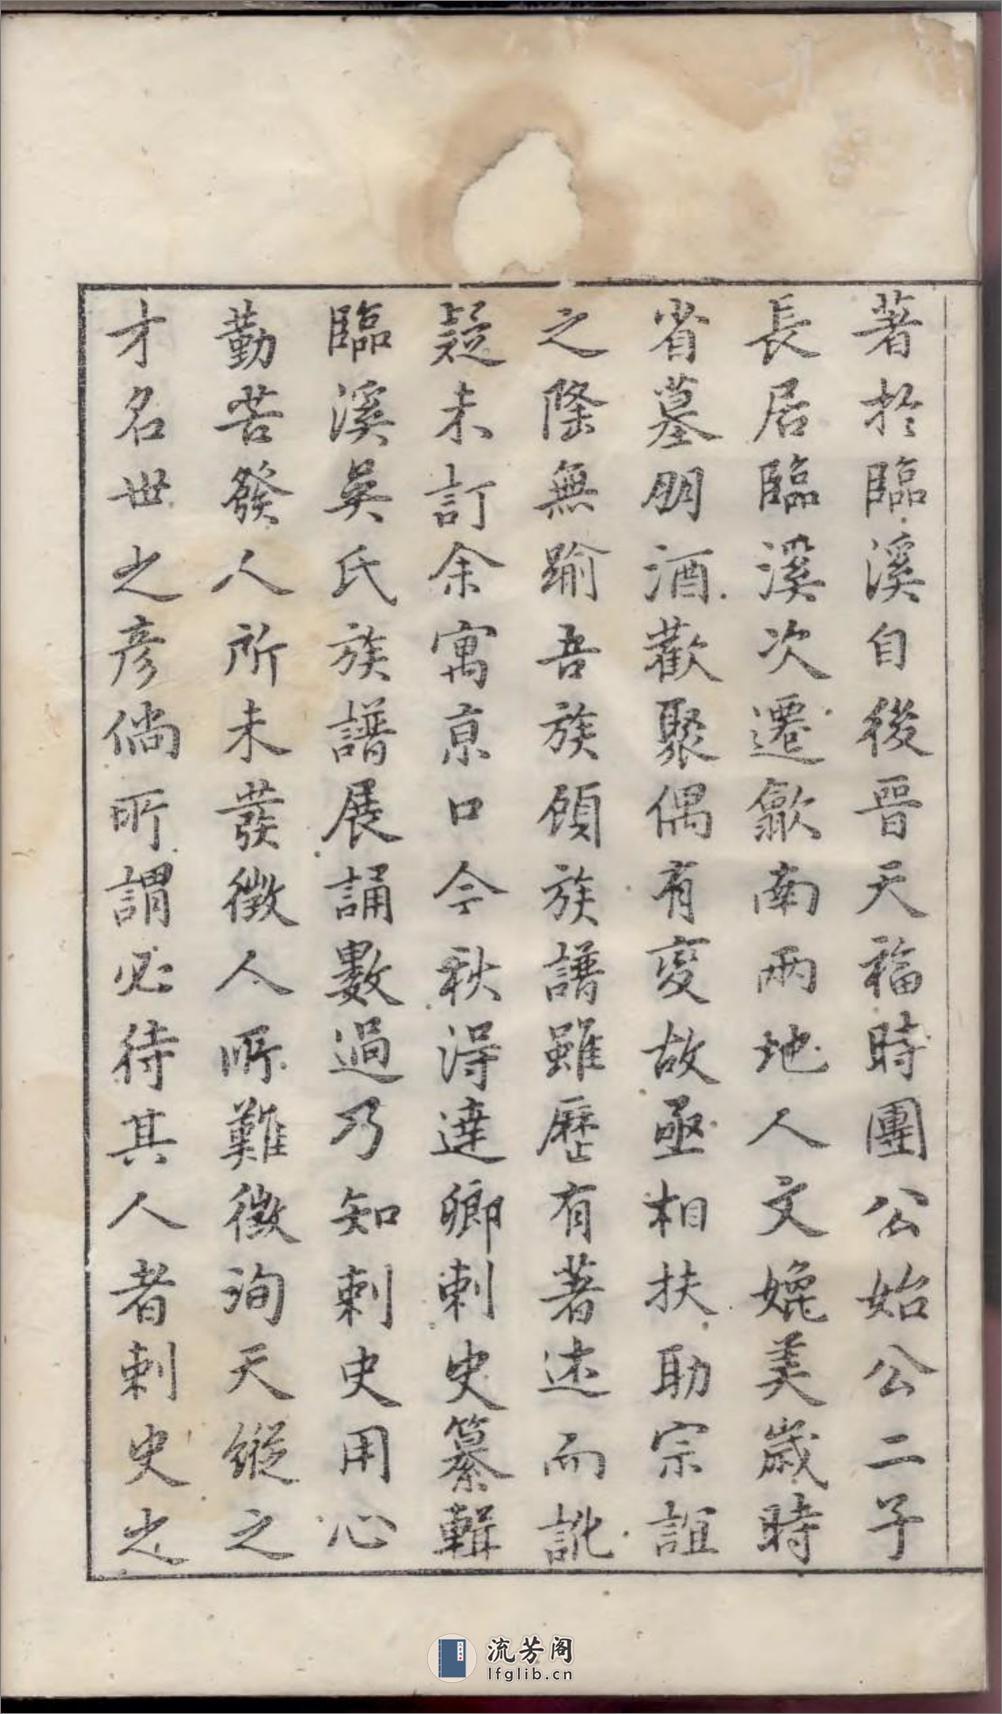 著於臨溪自後晉天福時團公始公二子
長居臨溪次遷歙南兩地人文媲美歲時
省墓朋酒歡聚偶有變故亟相扶助宗誼
之隆無踰吾族顧族譜雖歷有著述而訛
疑未訂余寓京口今秋淂達卿刺史纂輯
臨溪吳氏族譜展誦數過乃知刺史用心
勤苦發人所未發徵人所難徵洵天縱之
才名世之彥倘所謂必待其人者刺史之
流芳阁
lfglib.cn